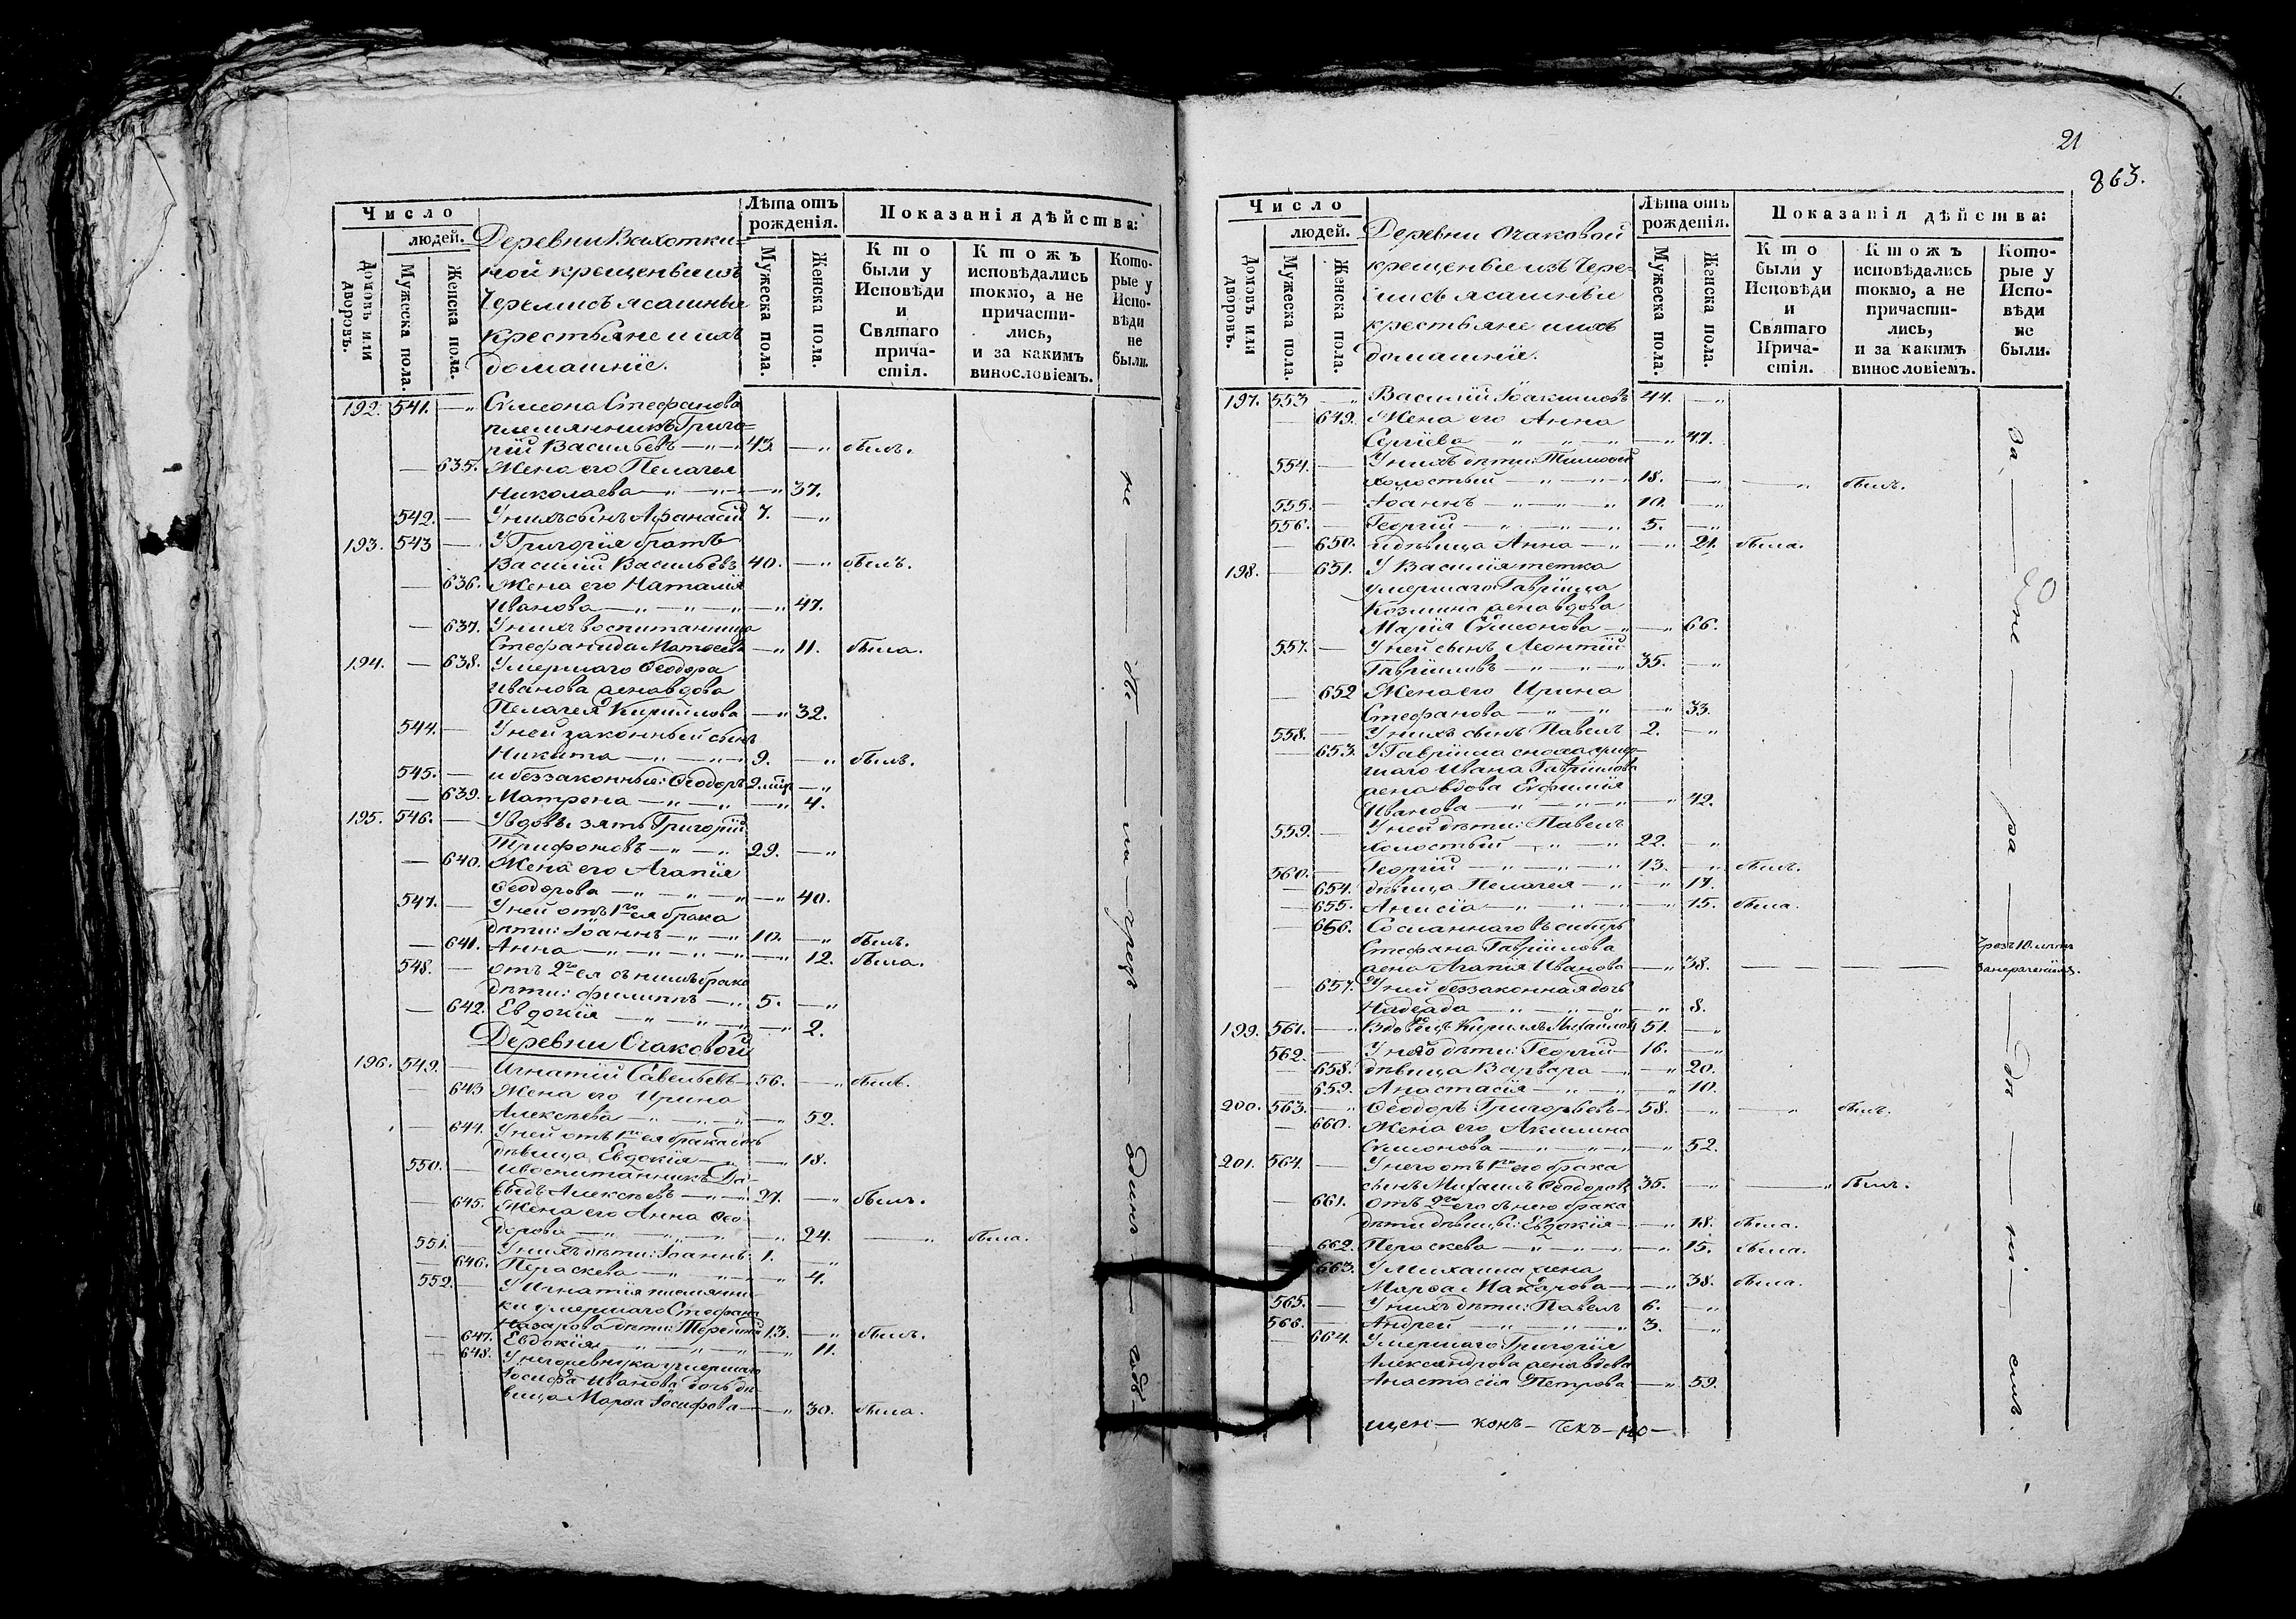 Число
людей.
Домовъ или дворовъ.
Мужеска пола.
Женска пола.
Деревни Вахотки-
ной крещеныи изъ
Черемисъ ясашныи
крестьяне и ихъ
домашніе.
Лѣта отъ рожденія.
Мужеска пола.
Женска пола.
Показанія дѣйства:
Кто были у Исповѣди и Святаго причастія.
Ктожъ исповѣдались токмо, а не причастились, и за какимъ винословіемъ.
Которые у Исповѣди не были.
192. 541. — Симеона Стефанова
племянникъ Григо-
рій Васильевъ 43. былъ.
635. Жена его Пелагея
Николаева 37.
542. У нихъ сынъ Афанасій 7.
193. 543 — У Григорія братъ
Василій Васильевъ 40. былъ.
636. Жена его Наталія
Иванова 47.
637. У нихъ воспитанница
Стефанида 11. была.
194. — 638. Умершаго Ѳеодора
Иванова жена вдова
Пелагея Кирилова 32.
544. — У ней законный сынъ
Никита 9. былъ.
545. — и беззаконныя: Ѳеодоръ 2.
639. Матрона 4.
195. 546. — У вдовы зять Григорій
Трифоновъ 29.
640. Жена его Агапія
Ѳеодорова 40.
547. — У ней отъ 1го ея брака
дѣти: Іоаннъ 10. былъ.
641. Анна 12. была.
548. — отъ 2го ея съ нимъ брака
дѣти: Филиппъ 5.
642. Евдокія 2.
Деревни Очаковой
196. 549. — Игнатій Савельевъ 56. былъ.
643 Жена его Ирина
Алексѣева 52.
644. У ней отъ 1го ея брака дочь
дѣвица Евдокія 18.
550. — и воспитанникъ Да-
выдъ Алексѣевъ 27. былъ.
645. Жена его Анна Ѳео-
дорова 24. была.
551. — У нихъ дѣти: Іоаннъ 1.
646. Параскева 4.
552. — У Игнатія племянни-
ки умершаго Стефана
Назарова дѣти: Терентій 13. былъ.
647. Евдокія 11.
648. У него умершаго
Іосифа Иванова дочь дѣ-
вица Марѳа Іосифова 30. была.
21
863.
Число
людей.
Домовъ или дворовъ.
Мужеска пола.
Женска пола.
Деревни Очаковой
крещеные изъ Чере-
мисъ ясашныи
крестьяне и ихъ
домашніе.
Лѣта отъ рожденія.
Мужеска пола.
Женска пола.
Показанія дѣйства:
Кто были у Исповѣди и Святаго Причастія.
Ктожъ исповѣдались токмо, а не причастились, и за какимъ винословіемъ.
Которые у Исповѣди не были.
197. 553 — Василій Іоакимовъ 44.
649. Жена его Анна
Сергіева 47.
554. — У нихъ дѣти: Тимоѳей
холостый 18. былъ.
555. — Іоаннъ 10.
556. — Георгій 5.
650. и дѣвица Анна 21. была.
198. — 651. У Василія тетка
умершаго Гавріила
Козмина жена вдова
Марія Симеонова 66.
557. — У ней сынъ Леонтій
Гавріиловъ 35.
652 Жена его Ирина
Стефанова 33.
558. — У нихъ сынъ Павелъ 2.
653. У Гавріила сноха умер-
шаго Ивана Гавріилова
жена вдова Евфимія
Иванова 42.
559. — У ней дѣти: Павелъ
холостый 22.
560. — Георгій 13. былъ.
654. дѣвица Пелагея 17.
655. Анисія 15. была.
656. Сосланнаго въ сибирь
Стефана Гавріилова
жена Агапія Иванова 38.
657. У ней беззаконная дочь
Надежда 8.
199. 561. — Вдовецъ Кирилъ Михаиловъ 51.
562. — У него дѣти: Георгій 16.
658. дѣвица Варвара 20.
659. Анастасія 10.
200. 563. — Ѳеодоръ Григорьевъ 58. былъ.
660. Жена его Акилина
Симонова 52.
201. 564. — У него отъ 1го его брака
сынъ Михаилъ Ѳеодоровъ 35. былъ.
661. отъ 2го его съ нею брака
дѣти дѣвицы: Евдокія 18. была.
662. Параскева 15. была.
663. У Михаила жена
Марѳа Макарова 38. была.
565. — У нихъ дѣти: Павелъ 6.
566. — Андрей 3.
664. Умершаго Григорія
Александрова жена вдова
Анастасія Петрова 59.